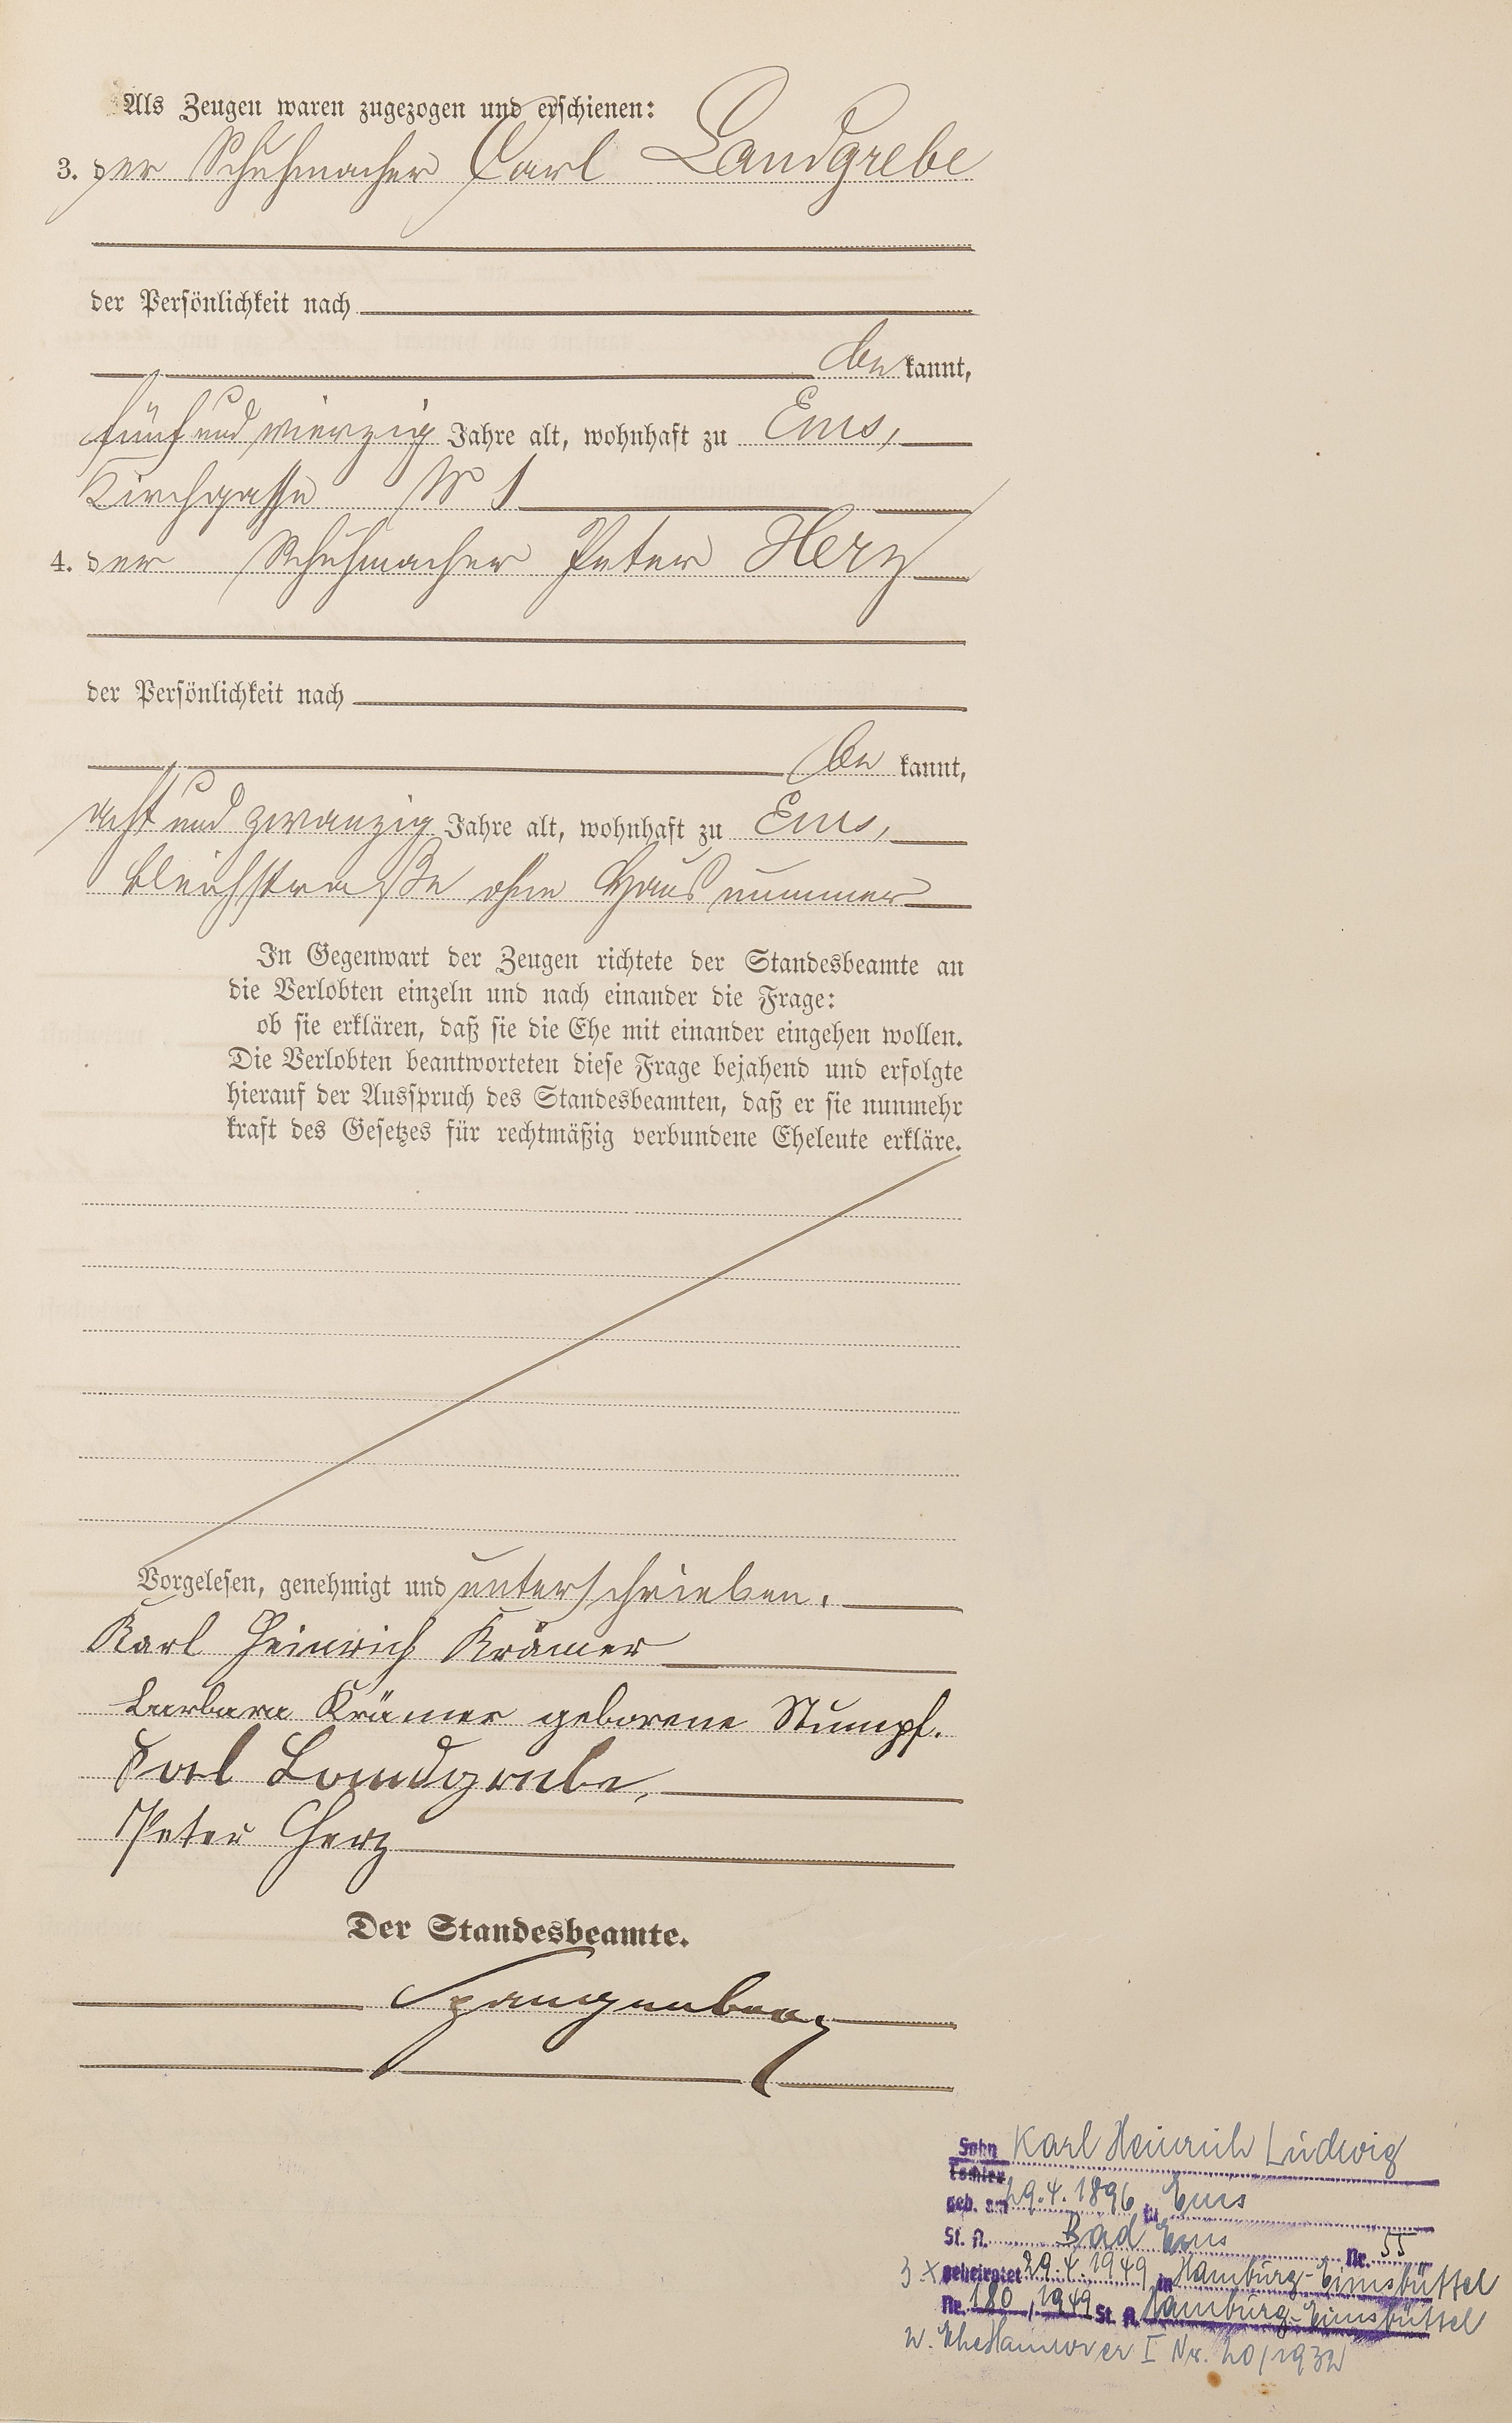 Als Zeugen waren zugezogen und erschienen:
3. der Schuhmacher Carl Landgrebe
der Persönlichkeit nach
be kannt,
fünf und vierzig Jahre alt, wohnhaft zu Ems,
Kirchgasse № 1
4. der Schuhmacher Peter Herz
der Persönlichkeit nach
be kannt,
acht und zwanzig Jahre alt, wohnhaft zu Ems,
Bleichstraße ohne Hausnummer
In Gegenwart der Zeugen richtete der Standesbeamte an
die Verlobten einzeln und nach einander die Frage:
ob sie erklären, daß sie die Ehe mit einander eingehen wollen.
Die Verlobten beantworteten diese Frage bejahend und erfolgte
hierauf der Ausspruch des Standesbeamten, daß er sie nunmehr
kraft des Gesetzes für rechtmäßig verbundene Eheleute erkläre.
Vorgelesen, genehmigt und unterschrieben.
Karl Heinrich Krämer
Barbara Krämer geborene Stumpf.
Karl Landgrebe,
Peter Herz
Der Standesbeamte.
Spangenberg
Sohn Karl Heinrich Ludwig
Tochter
geb. am 29.4.1896 zu Ems
St. A. Bad Ems Nr. 55
3.x geheiratet 29.4.1949 in Hamburg-Eimsbüttel
Nr. 180/1949 St. A. Hamburg-Eimsbüttel
2. Ehe Hannover I Nr. 20/1932